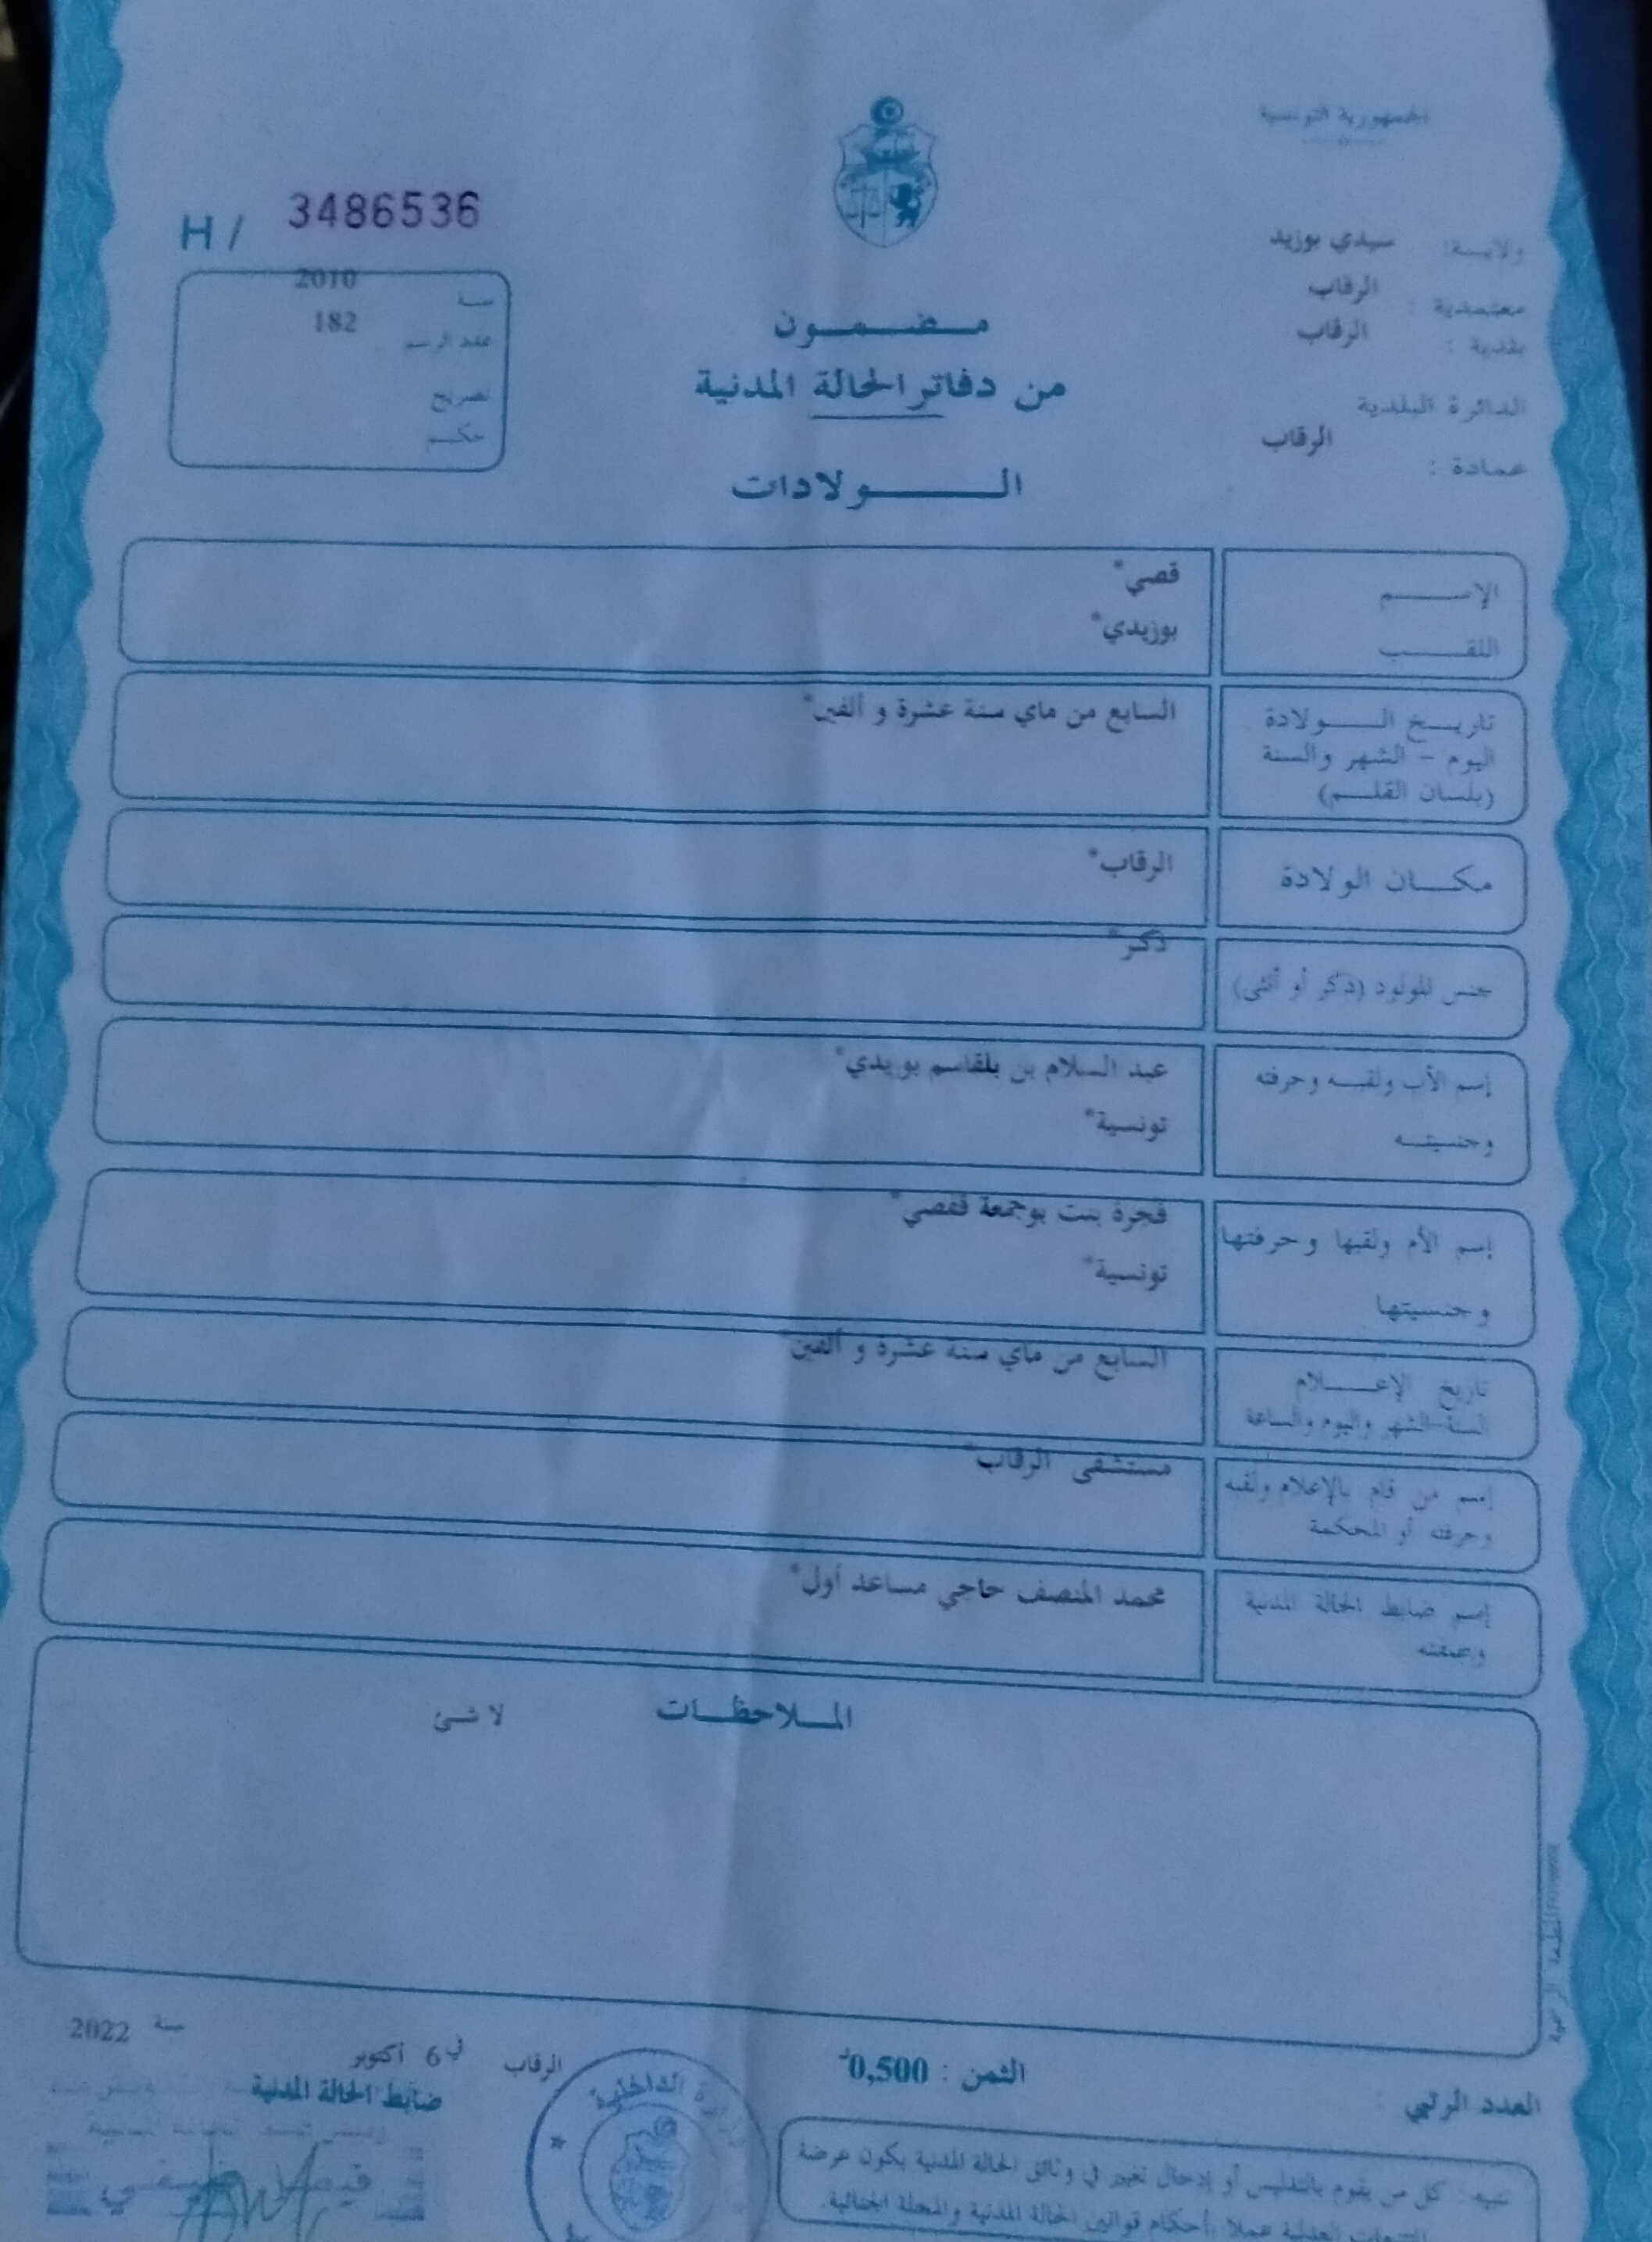 الجمهورية التونسية
H / 3486536
ولايـــة: سيدي بوزيد
معتمدية : الرقاب
بلدية : الرقاب
الدائرة البلدية
عمادة : الرقاب
سنة 2010
عدد الرسم 182
تصريح
حكـم
مـضـمـون
من دفاتر الحالة المدنية
الـولادات
الإســـم قصي*
اللقـــب بوزيدي*
تاريـخ الـــولادة السابع من ماي سنة عشرة و ألفين*
اليوم - الشهر والسنة
(بلسان القلـم)
مكـان الولادة الرقاب*
جنس المولود (ذكر أو أنثى) ذكر*
إسم الأب ولقبـه وحرفته عبد السلام بن بلقاسم بوزيدي*
وجنسيتـه تونسية*
إسم الأم ولقبها وحرفتها فجرة بنت بوجمعة قفصي*
وجنسيتها تونسية*
تاريخ الإعـــلام السابع من ماي سنة عشرة و ألفين*
السنة-الشهر واليوم والساعة
إسم من قام بالإعلام ولقبه مستشفى الرقاب*
وحرفته أو المحكمة
إسم ضابط الحالة المدنية محمد المنصف حاجي مساعد أول*
وصفته
المـلاحظـات لا شئ
الرقاب في 6 أكتوبر سنة 2022
ضابط الحالة المدنية
الثمن : 0,500د
العدد الرتبي :
وزارة الداخلية
تنبيه : كل من يقوم بالتدليس أو إدخال تغيير في وثائق الحالة المدنية يكون عرضة
للتتبعات العدلية عملا بأحكام قوانين الحالة المدنية والمجلة الجنائية.
المطبعة الرسمية